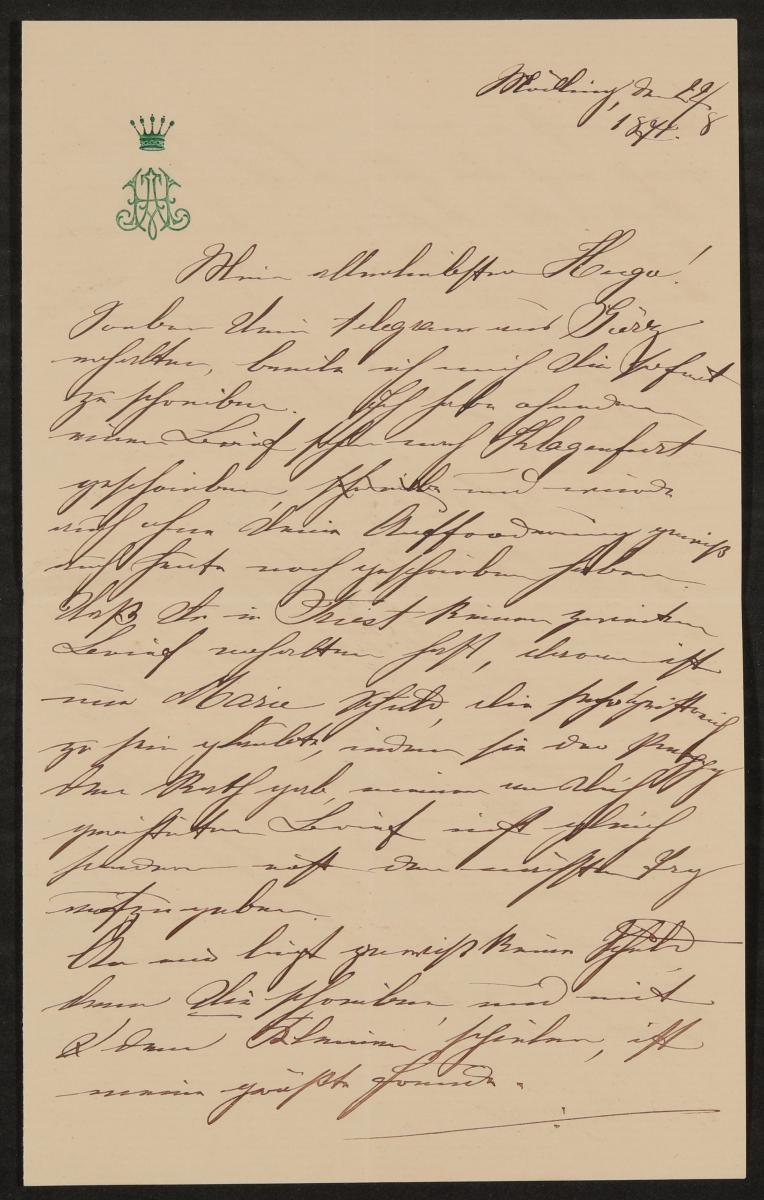 Mödling, den 29/8
187
Mein allerliebster Hugo!
Soeben Dein Telegram aus Görz
erhalten, beeile ich mich Dir sofort
zu schreiben. Ich habe
einen Brief schon nach Klagenfurt
geschrieben, und würde
auch ohne Deine Aufforderung gewiß
auch heute noch geschrieben haben.
Daß Du in Triest keinen zweiten
Brief erhalten hast, daran ist
nur Marie Schuld, die sehr
zu sein glaubte, indem sie der
den Rath gab, meinen an Dich
Brief nicht gleich
sondern erst den nächsten Tag
aufzugeben.
An mir liegt gewiß keine Schuld
denn Dir schreiben und mit
dem Kleinen spielen, ist
meine größte Freude.